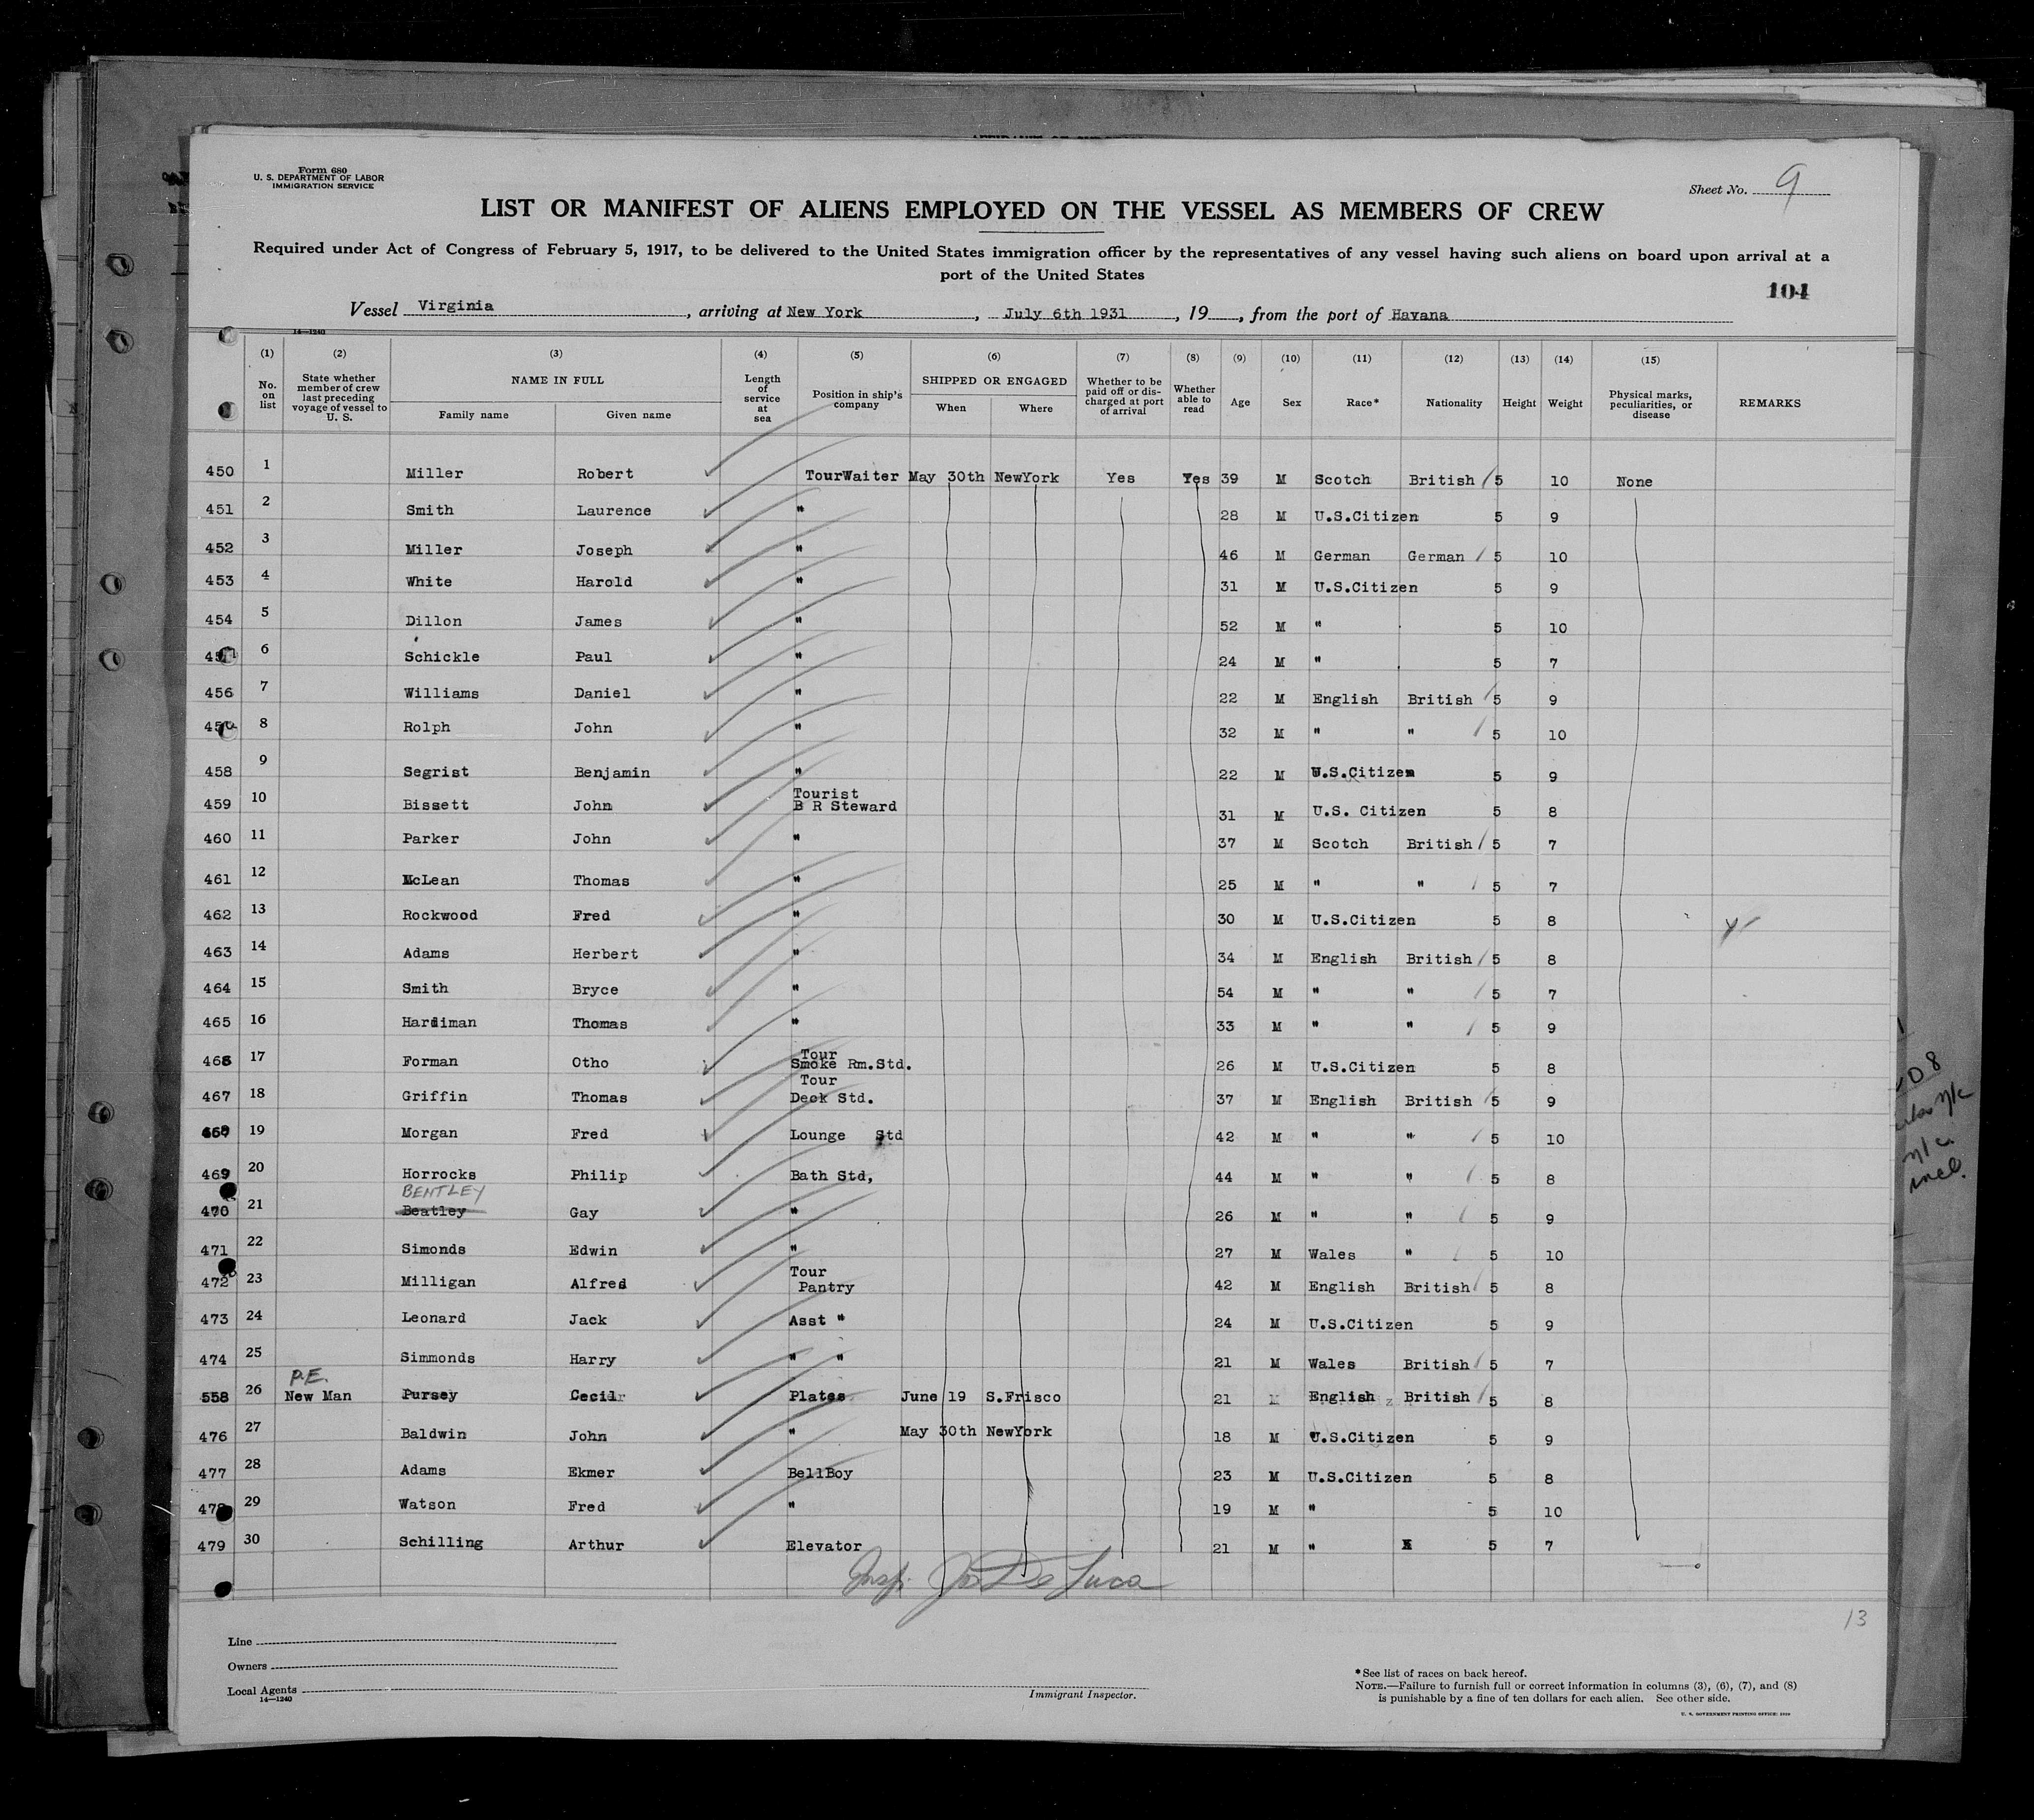 Form 680
U. S. DEPARTMENT OF LABOR
IMMIGRATION SERVICE
Sheet No. 9
LIST OR MANIFEST OF ALIENS EMPLOYED ON THE VESSEL AS MEMBERS OF CREW
Required under Act of Congress of February 5, 1917, to be delivered to the United States immigration officer by the representatives of any vessel having such aliens on board upon arrival at a
port of the United States
104
Vessel Virginia, arriving at New York, July 6th 1931, 19, from the port of Havana
14—1240
(1) (2) (3) (4) (5) (6) (7) (8) (9) (10) (11) (12) (13) (14) (15)
No. on list State whether member of crew last preceding voyage of vessel to U. S. NAME IN FULL Family name Given name Length of service at sea Position in ship's company SHIPPED OR ENGAGED When Where Whether to be paid off or discharged at port of arrival Whether able to read Age Sex Race* Nationality Height Weight Physical marks, peculiarities, or disease REMARKS
450 1 Miller Robert TourWaiter May 30th NewYork Yes Yes 39 M Scotch British 5 10 None
451 2 Smith Laurence " 28 M U.S.Citizen 5 9
452 3 Miller Joseph " 46 M German German 5 10
453 4 White Harold " 31 M U.S.Citizen 5 9
454 5 Dillon James " 52 M " 5 10
6 Schickle Paul " 24 M " 5 7
456 7 Williams Daniel " 22 M English British 5 9
8 Rolph John " 32 M " " 5 10
458 9 Segrist Benjamin " 22 M U.S.Citizen 5 9
459 10 Bissett John Tourist B R Steward 31 M U.S. Citizen 5 8
460 11 Parker John " 37 M Scotch British 5 7
461 12 McLean Thomas " 25 M " " 5 7
462 13 Rockwood Fred " 30 M U.S.Citizen 5 8
463 14 Adams Herbert " 34 M English British 5 8
464 15 Smith Bryce " 54 M " " 5 7
465 16 Hardiman Thomas " 33 M " " 5 9
466 17 Forman Otho Tour Smoke Rm.Std. 26 M U.S.Citizen 5 8
467 18 Griffin Thomas Tour Deck Std. 37 M English British 5 9
468 19 Morgan Fred Lounge Std 42 M " " 5 10
469 20 Horrocks Philip Bath Std, 44 M " " 5 8
BENTLEY
470 21 Beatley Gay " 26 M " " 5 9
471 22 Simonds Edwin " 27 M Wales " 5 10
472 23 Milligan Alfred Tour Pantry 42 M English British 5 8
473 24 Leonard Jack Asst " 24 M U.S.Citizen 5 9
474 25 Simmonds Harry " " 21 M Wales British 5 7
P.E.
558 26 New Man Pursey Cecil Plates June 19 S.Frisco 21 M English British 5 8
476 27 Baldwin John " May 30th NewYork 18 M U.S.Citizen 5 9
477 28 Adams Ekmer BellBoy 23 M U.S.Citizen 5 8
478 29 Watson Fred " 19 M " 5 10
479 30 Schilling Arthur Elevator 21 M " 5 7
Insp. Jos De Luca
13
Line
Owners
Local Agents
14—1240
Immigrant Inspector.
*See list of races on back hereof.
NOTE.—Failure to furnish full or correct information in columns (3), (6), (7), and (8)
is punishable by a fine of ten dollars for each alien. See other side.